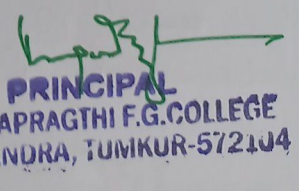 PRINCIPAL
APRAGTHI F.G.COLLEGE
NDRA, TUMKUR-572104